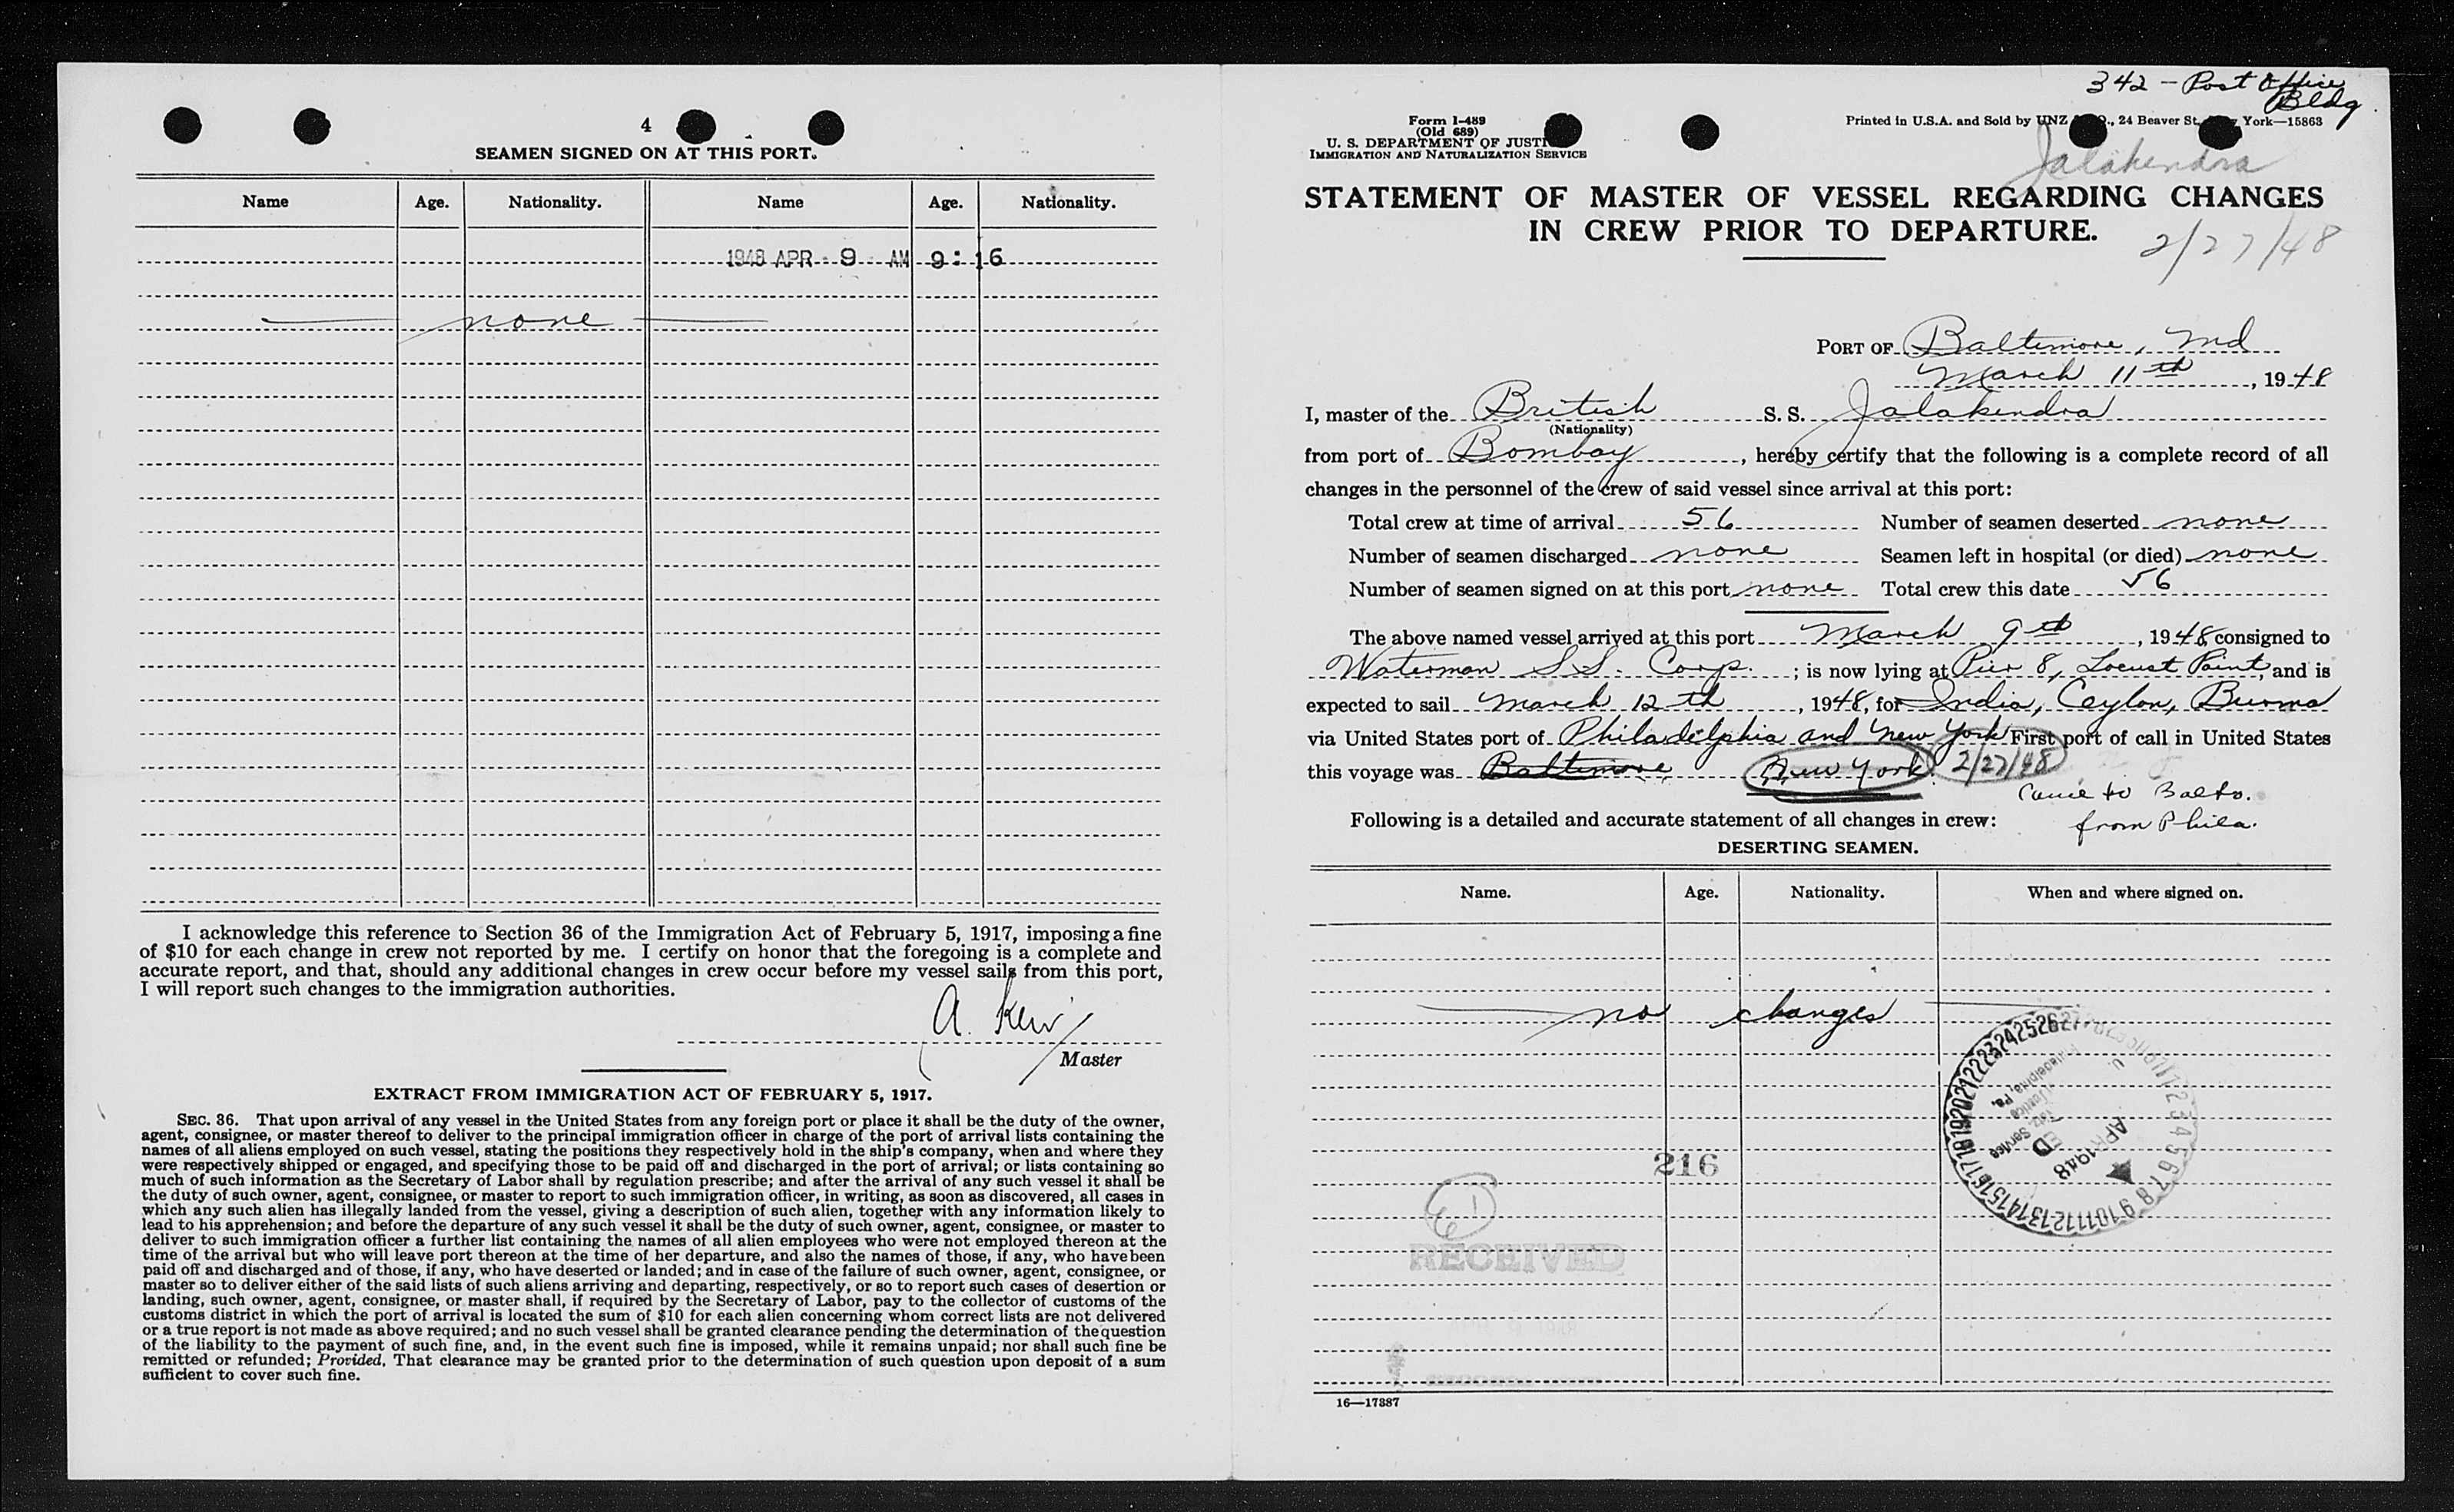 4
SEAMEN SIGNED ON AT THIS PORT.
Name Age. Nationality. Name Age. Nationality.
1948 APR 9 AM 9:16
none
I acknowledge this reference to Section 36 of the Immigration Act of February 5, 1917, imposing a fine
of $10 for each change in crew not reported by me. I certify on honor that the foregoing is a complete and
accurate report, and that, should any additional changes in crew occur before my vessel sails from this port,
I will report such changes to the immigration authorities.
A.
Master
EXTRACT FROM IMMIGRATION ACT OF FEBRUARY 5, 1917.
SEC. 36. That upon arrival of any vessel in the United States from any foreign port or place it shall be the duty of the owner,
agent, consignee, or master thereof to deliver to the principal immigration officer in charge of the port of arrival lists containing the
names of all aliens employed on such vessel, stating the positions they respectively hold in the ship's company, when and where they
were respectively shipped or engaged, and specifying those to be paid off and discharged in the port of arrival; or lists containing so
much of such information as the Secretary of Labor shall by regulation prescribe; and after the arrival of any such vessel it shall be
the duty of such owner, agent, consignee, or master to report to such immigration officer, in writing, as soon as discovered, all cases in
which any such alien has illegally landed from the vessel, giving a description of such alien, together with any information likely to
lead to his apprehension; and before the departure of any such vessel it shall be the duty of such owner, agent, consignee, or master to
deliver to such immigration officer a further list containing the names of all alien employees who were not employed thereon at the
time of the arrival but who will leave port thereon at the time of her departure, and also the names of those, if any, who have been
paid off and discharged and of those, if any, who have deserted or landed; and in case of the failure of such owner, agent, consignee, or
master so to deliver either of the said lists of such aliens arriving and departing, respectively, or so to report such cases of desertion or
landing, such owner, agent, consignee, or master shall, if required by the Secretary of Labor, pay to the collector of customs of the
customs district in which the port of arrival is located the sum of $10 for each alien concerning whom correct lists are not delivered
or a true report is not made as above required; and no such vessel shall be granted clearance pending the determination of the question
of the liability to the payment of such fine, and, in the event such fine is imposed, while it remains unpaid; nor shall such fine be
remitted or refunded; Provided, That clearance may be granted prior to the determination of such question upon deposit of a sum
sufficient to cover such fine.
342 - Post Office
Bldg
Form I-489
(Old 689)
U. S. DEPARTMENT OF JUSTI
IMMIGRATION AND NATURALIZATION SERVICE
Printed in U.S.A. and Sold by UNZ ., 24 Beaver St. York—15863
Jalakendra
STATEMENT OF MASTER OF VESSEL REGARDING CHANGES
IN CREW PRIOR TO DEPARTURE.
2/27/48
PORT OF Baltimore, Md
March 11th, 1948
I, master of the British S. S. Jalakendra
(Nationality)
from port of Bombay, hereby certify that the following is a complete record of all
changes in the personnel of the crew of said vessel since arrival at this port:
Total crew at time of arrival 56 Number of seamen deserted none
Number of seamen discharged none Seamen left in hospital (or died) none
Number of seamen signed on at this port none Total crew this date 56
The above named vessel arrived at this port March 9th, 1948 consigned to
Waterman S.S. Corp. ; is now lying at Pier 8, Locust Point, and is
expected to sail March 12th, 1948, for India, Ceylon, Burma
via United States port of Philadelphia and New York First port of call in United States
this voyage was Baltimore New York 2/27/48
Came to Balto.
from Phila.
Following is a detailed and accurate statement of all changes in crew:
DESERTING SEAMEN.
Name. Age. Nationality. When and where signed on.
no changes
216
RECEIVED
APR 1948
16—17887